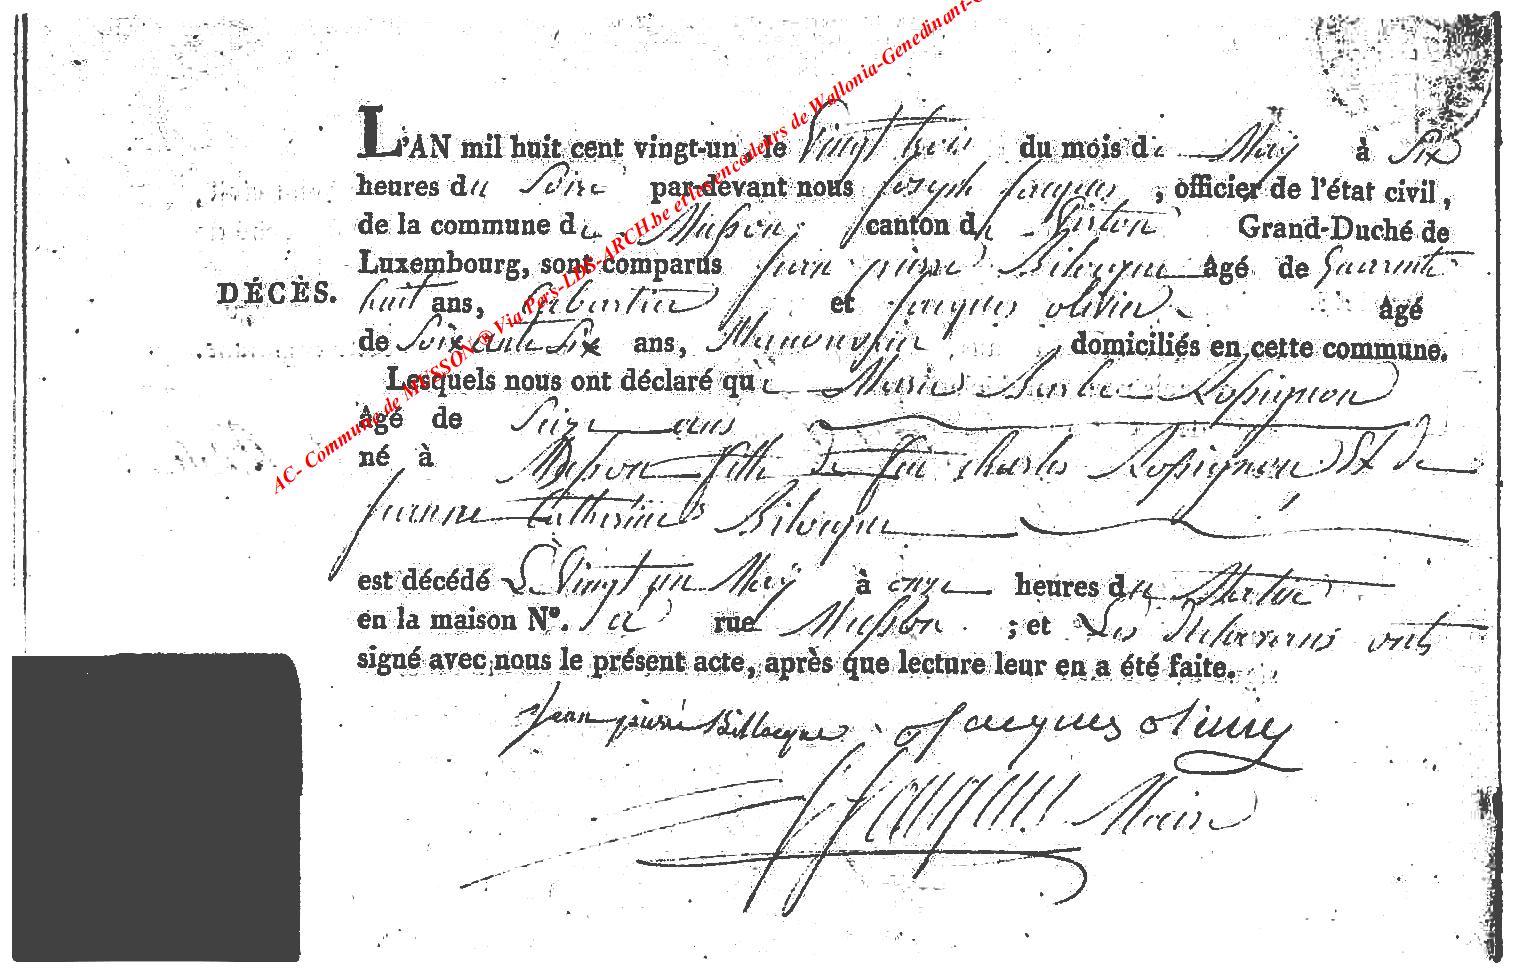 L'AN mil huit cent vingt-un, le Vingt trois du mois de May à Six
heures du Soire par-devant nous Joseph Jacques, officier de l'état civil,
de la commune de Musson canton de Virton Grand-Duché de
Luxembourg, sont comparus Jean pierre Bilocque Agé de Quarente
DÉCÈS.
huit ans, Cabartier et Jacques olivier Agé
de Soixante Six ans, Manouvrier domiciliés en cette commune.
Lesquels nous ont déclaré que Marie Barbe Rossignon
âgé de Seize ans
né à Musson fille de feu charles Rossignon Et de
Jeanne Catherine Bilocque
est décédé Le Vingt un May à onze heures du Matin
en la maison Nº. rue Musson ; et Les Déclarans ont
signé avec nous le présent acte, après que lecture leur en a été faite.
Jean pierre Billocque Jacques olivier
JJacques Maire
AC- Commune de MUSSON @ Via Pers-LDS-ARCH.be et les encodeurs de Wallonia-Genedinant-